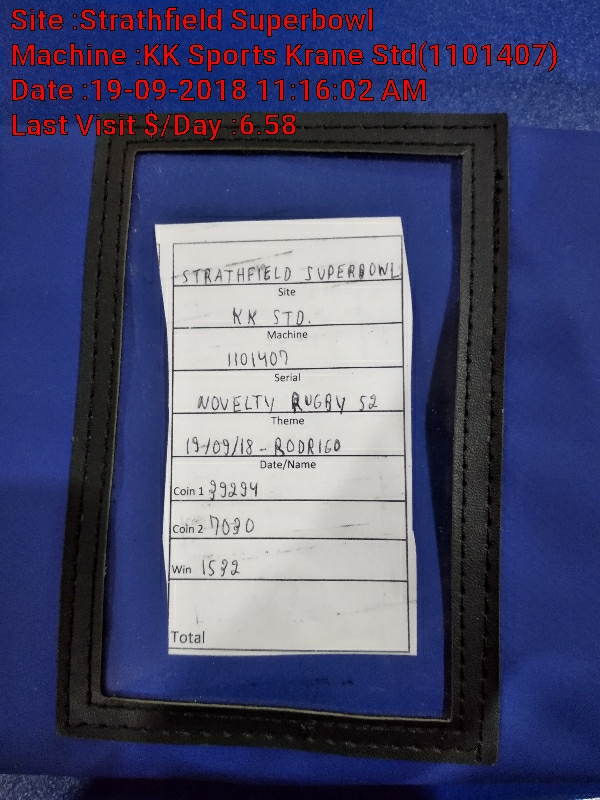 Site :Strathfield Superbowl
Machine :KK Sports Krane Std(1101407)
Date :19-09-2018 11:16:02 AM
Last Visit $/Day :6.58
STRATHFIELD SUPERBOWL
Site
KK STD.
Machine
1101407
Serial
NOVELTY RUGBY S2
Theme
19/09/18 - RODRIGO
Date/Name
Coin 1 39294
Coin 2 7030
Win 1532
Total